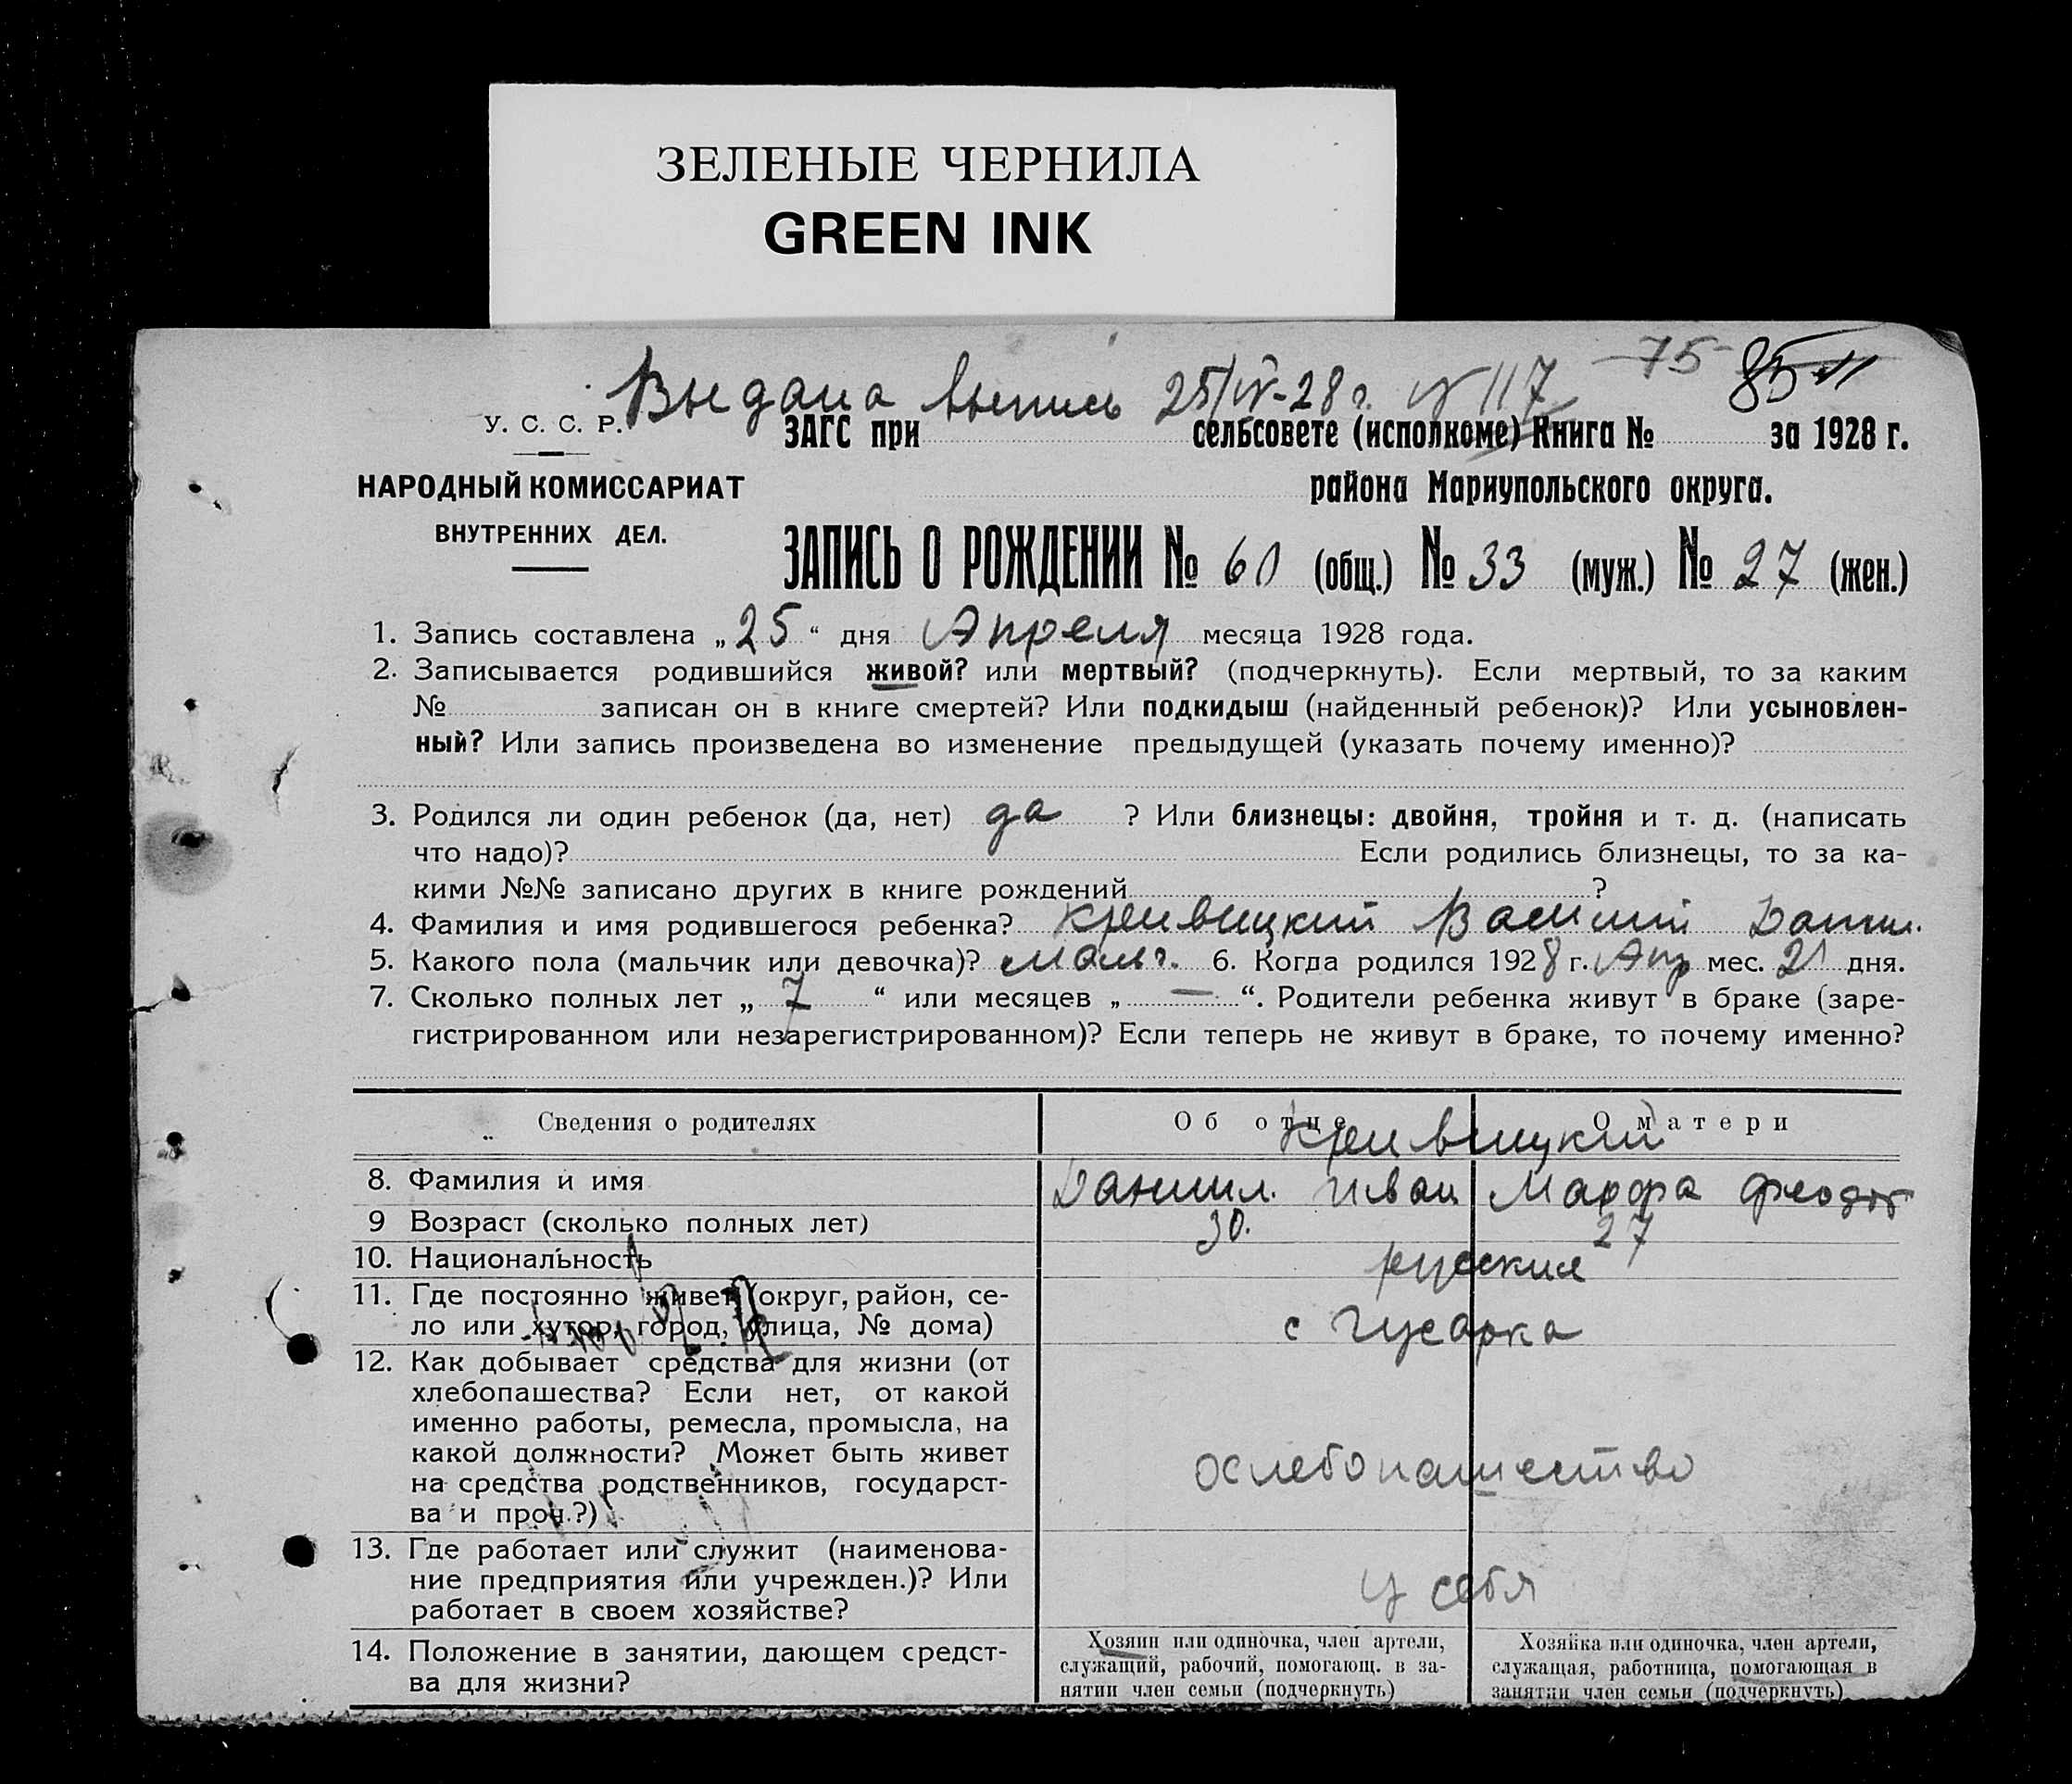 ЗЕЛЕНЫЕ ЧЕРНИЛА
GREEN INK
75 85
Выдана выпись 25/IV-28 г. № 117
У. С. С. Р. ЗАГС при сельсовете (исполкоме) Книга № за 1928 г.
НАРОДНЫЙ КОМИССАРИАТ района Мариупольского округа.
ВНУТРЕННИХ ДЕЛ.
ЗАПИСЬ О РОЖДЕНИИ № 60 (общ.) № 33 (муж.) № 27 (жен.)
1. Запись составлена „25“ дня Апреля месяца 1928 года.
2. Записывается родившийся живой? или мертвый? (подчеркнуть). Если мертвый, то за каким
№ записан он в книге смертей? Или подкидыш (найденный ребенок)? Или усыновлен-
ный? Или запись произведена во изменение предыдущей (указать почему именно)?
3. Родился ли один ребенок (да, нет) да ? Или близнецы: двойня, тройня и т. д. (написать
что надо)? Если родились близнецы, то за ка-
кими №№ записано других в книге рождений ?
4. Фамилия и имя родившегося ребенка? Кревицкий Василий Данил.
5. Какого пола (мальчик или девочка)? мальч. 6. Когда родился 1928 г. Апр мес. 21 дня.
7. Сколько полных лет „ 7 “ или месяцев „ — “. Родители ребенка живут в браке (заре-
гистрированном или незарегистрированном)? Если теперь не живут в браке, то почему именно?
Сведения о родителях Об отце О матери
Кревицкий
8. Фамилия и имя Даниил. Иван Феодот
9 Возраст (сколько полных лет) 30. 27
10. Национальность русския
11. Где постоянно живет (округ, район, се-
ло или хутор, город, улица, № дома) с Гусарка
12. Как добывает средства для жизни (от
хлебопашества? Если нет, от какой
именно работы, ремесла, промысла, на
какой должности? Может быть живет
на средства родственников, государст-
ва и проч.?)
хлебопашество
13. Где работает или служит (наименова-
ние предприятия или учрежден.)? Или
работает в своем хозяйстве?
у себя
14. Положение в занятии, дающем средст-
ва для жизни?
Хозяин или одиночка, член артели,
служащий, рабочий, помогающ. в за-
нятии член семьи (подчеркнуть)
Хозяйка или одиночка, член артели,
служащая, работница, помогающая в
занятии член семьи (подчеркнуть)